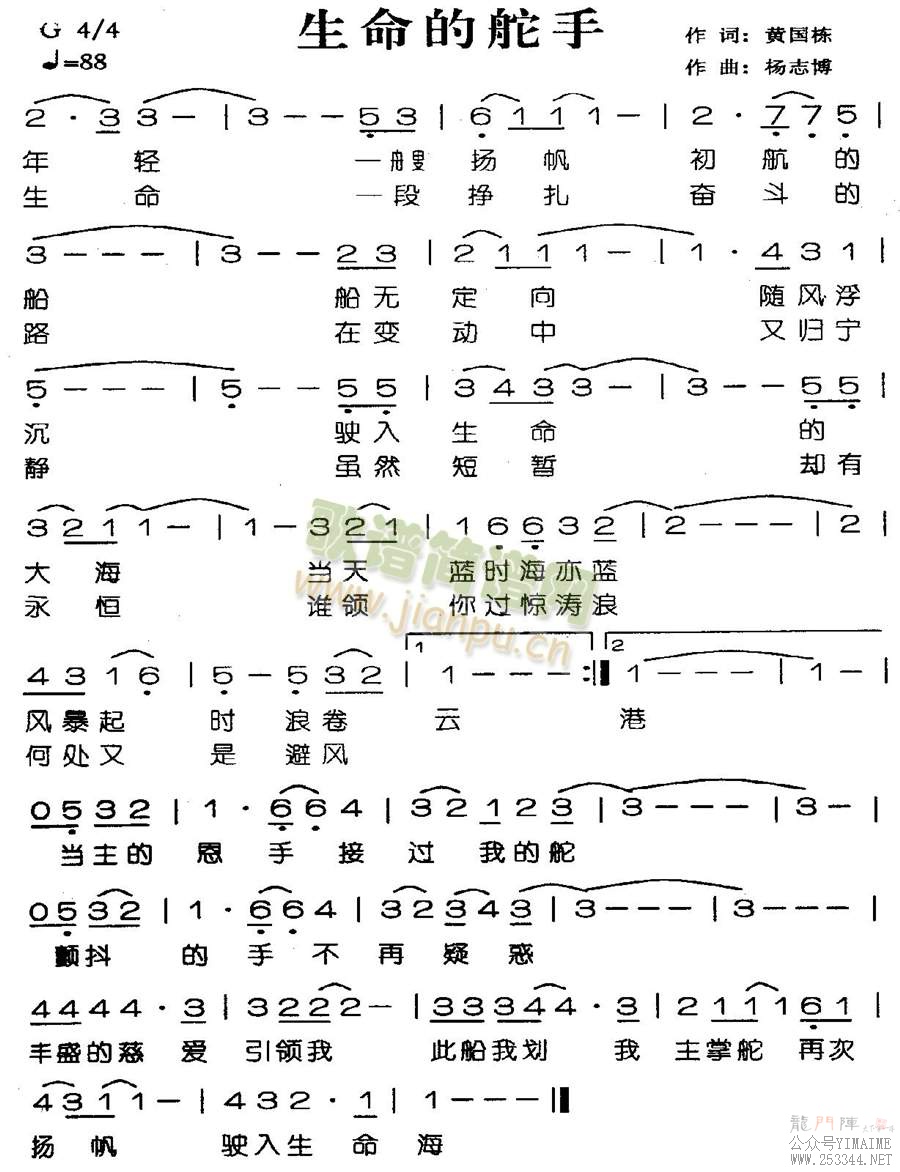 生命的舵手
G 4/4
♩=88
作 词：黄国栋
作 曲：杨志博
2 · 3 3 - | 3 - - 5 3 | 6 1 1 1 - | 2 · 7 7 5 |
年 轻 一艘 扬 帆 初 航 的
生 命 一段 挣 扎 奋 斗 的
3 - - - | 3 - - 2 3 | 2 1 1 1 - | 1 · 4 3 1 |
船 船无 定 向 随风浮
路 在变 动 中 又归宁
5 - - - | 5 - - 5 5 | 3 4 3 3 - | 3 - - 5 5 |
沉 驶入 生 命 的
静 虽然 短 暂 却有
3 2 1 1 - | 1 - 3 2 1 | 1 6 6 3 2 | 2 - - - | 2 |
大 海 当天 蓝时海亦蓝
永 恒 谁领 你过惊涛浪
1 2
4 3 1 6 | 5 - 5 3 2 | 1 - - - :| 1 - - - | 1 - |
风暴起 时 浪卷 云 港
何处又 是 避风
0 5 3 2 | 1 · 6 6 4 | 3 2 1 2 3 | 3 - - - | 3 - |
当主的 恩 手 接 过 我的舵
0 5 3 2 | 1 · 6 6 4 | 3 2 3 4 3 | 3 - - - | 3 - - - |
颤抖 的 手 不 再 疑 惑
4 4 4 4 · 3 | 3 2 2 2 - | 3 3 3 3 4 4 · 3 | 2 1 1 1 6 1 |
丰盛的慈 爱 引领我 此船我划 我 主掌舵 再次
4 3 1 1 - | 4 3 2 · 1 | 1 - - - |]
扬 帆 驶入生 命 海
歌谱简谱网
www.jianpu.cn
龍門陣
公众号YIMAIME
www.253344.NET